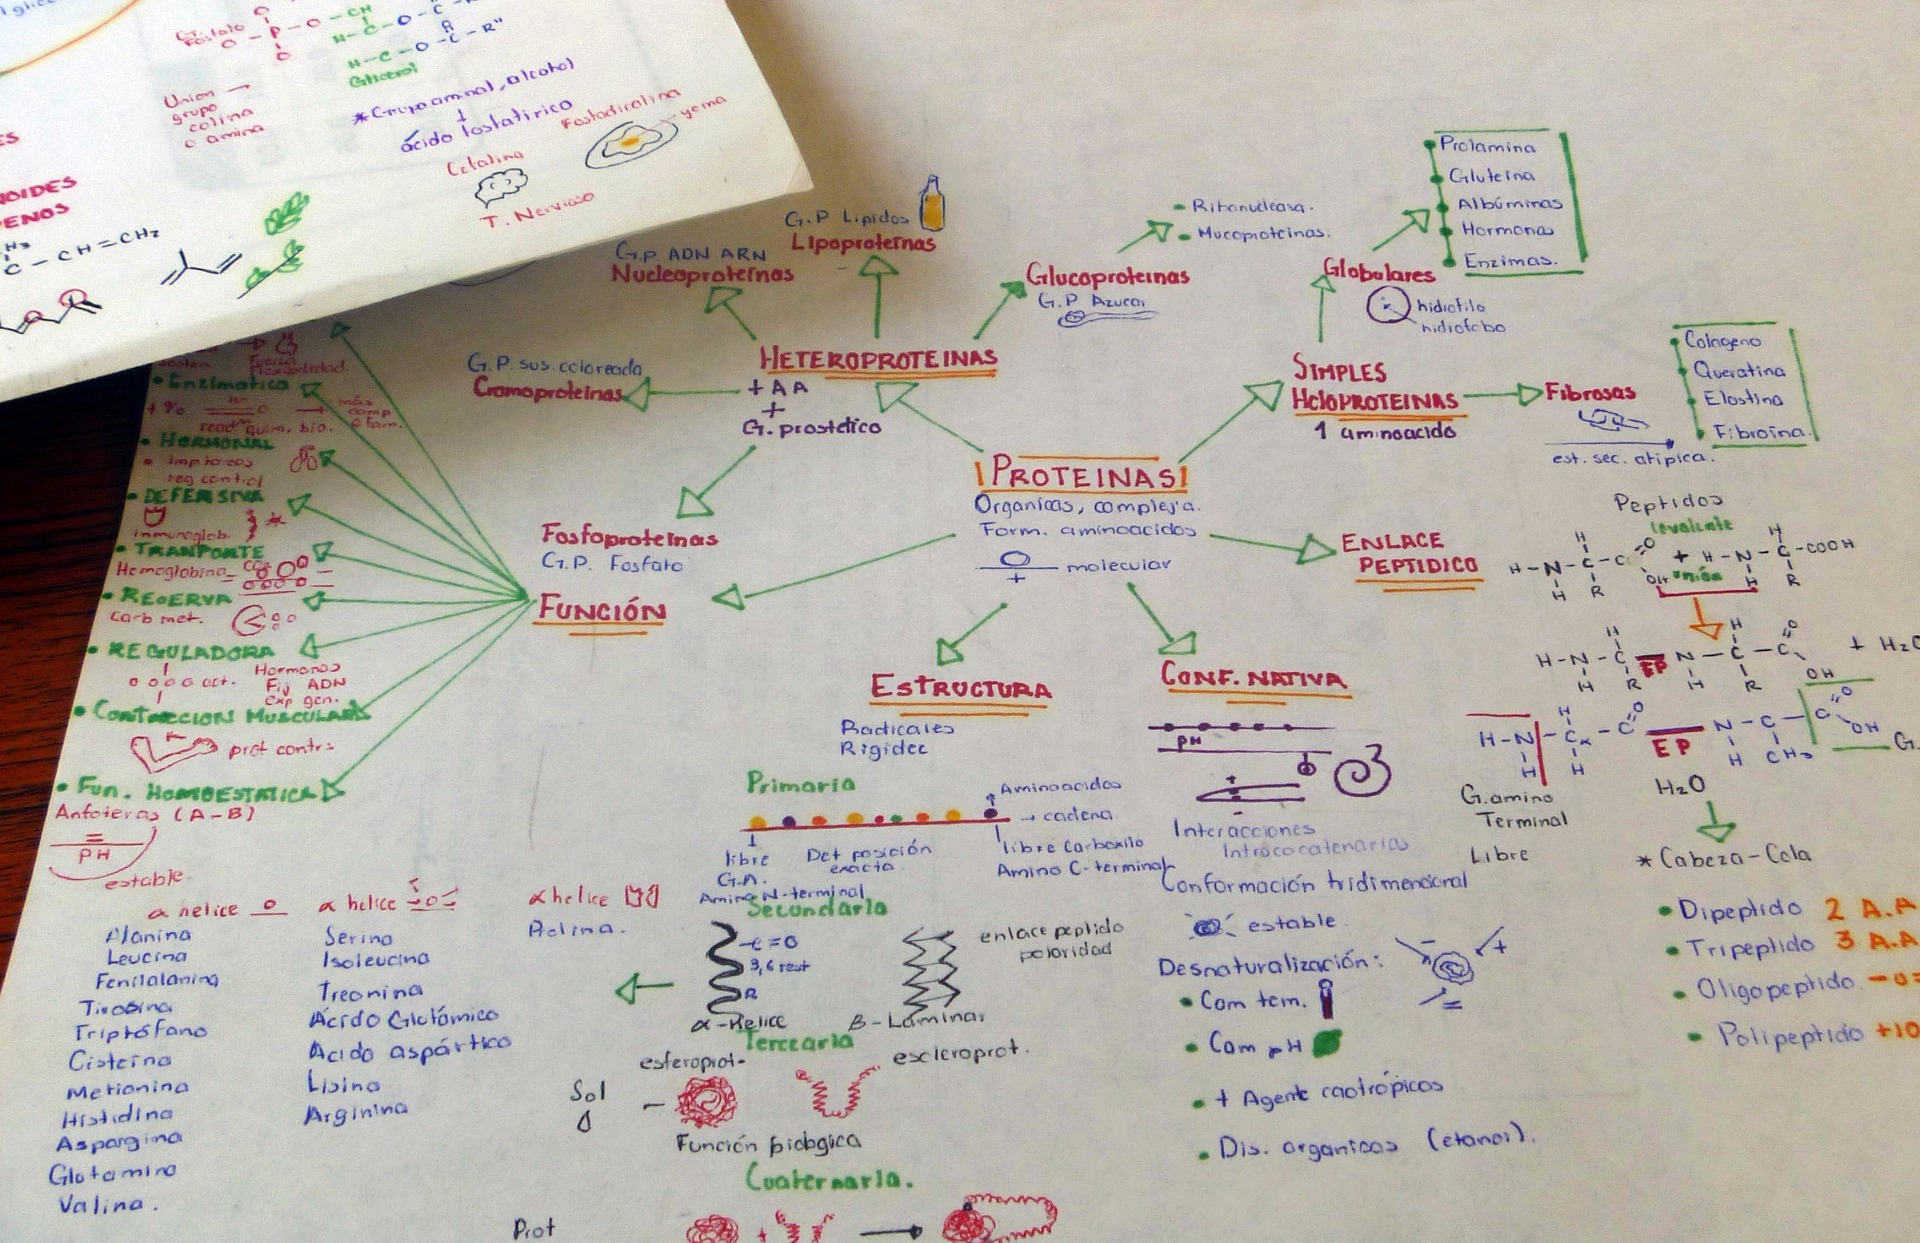 Fosfato
O - P - O - CH
O
H - C - O - C - R
H - C - O - C - R"
Glicerol
Union →
grupo
colina
o amina
*Grupo aminal, alcohol
+
ácido fosfatirico
Cefalina
T. Nervioso
yema
NOIDES
ENOS
C - CH = CH2
PROTEINAS
Organicas, compleja.
Form. aminoacidos
+ molecular
HETEROPROTEINAS
+ AA
+
G. prostetico
G.P ADN ARN
Nucleoproteínas
G.P Lipidos
Lipoproteínas
Glucoproteinas
G.P Azucar
• Ribonucleasa.
• Mucoproteinas.
G.P. sus. coloreada
Cromoproteinas
Fosfoproteinas
G.P. Fosfato
SIMPLES
HOLOPROTEINAS
1 aminoacido
Globulares
hidrofilo
hidrofobo
Prolamina
Gluteina
Albúminas
Hormonas
Enzimas.
Fibrosas
est. sec. atipica.
Colageno
Queratina
Elastina
Fibroina.
ENLACE
PEPTIDICO
Peptidos
covalente
unión
H - N - C - C = O
OH
+ H - N - C - COOH
H R H R
H - N - C EP N - C - C = O
OH
+ H2O
H - N - C - C = O
EP
N - C - C = O
OH
CH3
G.amino
Terminal
Libre
H2O
* Cabeza-Cola
• Dipeptido 2 A.A
• Tripeptido 3 A.A
• Oligopeptido
• Polipeptido +10
FUNCIÓN
• Enzimatica
reac quim. bio.
• HORMONAL
reg control
• DEFENSIVA
inmunoglob.
• TRANPORTE
Hemoglobina
• RESERVA
Carb met.
• REGULADORA
act.
Hormonas
Fij ADN
exp gen.
• CONTRACCION MUSCULAR
prot contr.
• Fun. HOMOESTATICA
Anfoteras (A-B)
=
PH
estable.
ESTRUCTURA
Radicales
Rigidez
Primaria
Aminoacidos
→ cadena
libre
G.A.
Amino N-terminal
Det posición
exacta
libre Carboxilo
Amino C-terminal
Secundaria
-C=O
3,6 rest
R
α-Helice
β-Laminar
enlace peptido
polaridad
Terciaria
esferoprot.
escleroprot.
Sol
Función biologica
Cuaternaria.
Prot
α helice
Alanina
Leucina
Fenilalanina
Tirosina
Triptófano
Cisteína
Metionina
Histidina
Aspargina
Glutamina
Valina.
α helice
Serina
Isoleucina
Treonina
Ácido Glutámico
Acido aspártico
Lisina
Arginina
α helice
Prolina.
CONF. NATIVA
PH
Interacciones
Intracatenarias
Conformación tridimencional
estable.
Desnaturalización:
• Cam tem.
• Cam pH
• + Agente caotrópicos
• Dis. organicos (etanol).